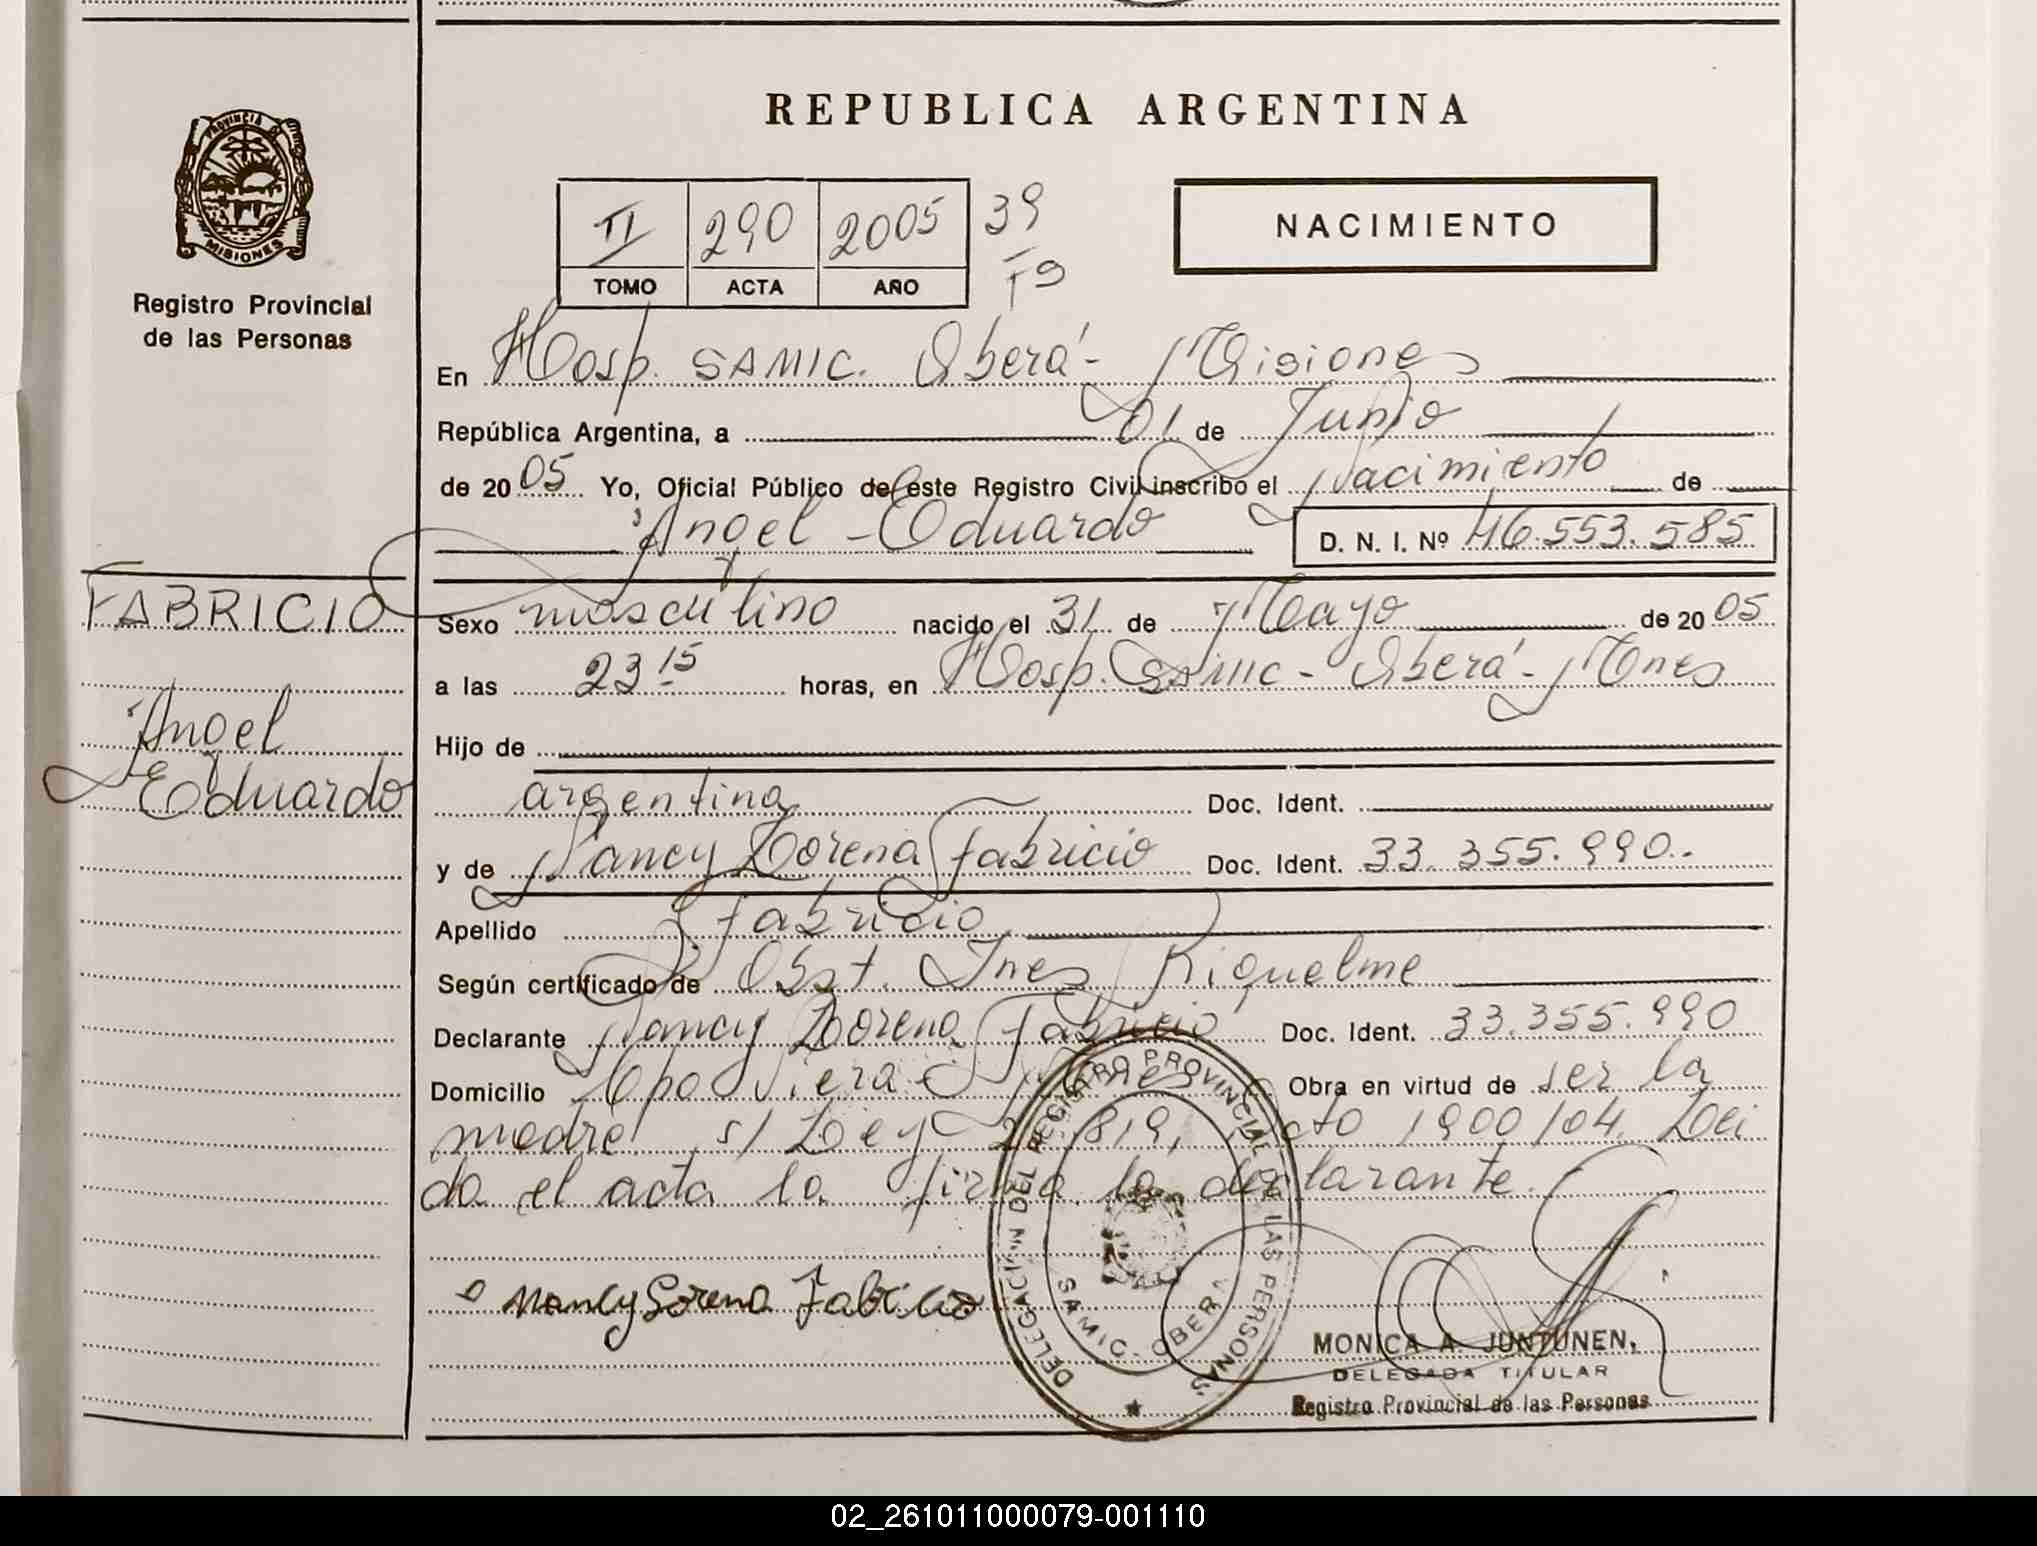 REPUBLICA ARGENTINA
PROVINCIA DE
MISIONES
Registro Provincial
de las Personas
II 290 2005 39
TOMO ACTA AÑO Fº
NACIMIENTO
En Hosp. SAMIC. Oberá - Misiones
República Argentina, a 01 de Junio
de 2005 Yo, Oficial Público de este Registro Civil inscribo el Nacimiento de
Angel Eduardo D. N. I. Nº 46.553.585
FABRICIO
Angel
Eduardo
Sexo masculino nacido el 31 de Mayo de 2005
a las 23 15 horas, en Hosp. Samic - Oberá - Mnes
Hijo de
argentina Doc. Ident.
y de Nancy Lorena Fabricio Doc. Ident. 33.355.990.
Apellido Fabricio
Según certificado de Obst. Ines Riquelme
Declarante Nancy Lorena Fabricio Doc. Ident. 33.355.990
Domicilio Cpo Viera - Mnes Obra en virtud de ser la
madre s/ Ley 2.819, Dcto 1900/04. Lei
da el acta la firma la declarante.
Nancy Lorena Fabricio
DELEGACION DEL REGISTRO PROVINCIAL DE LAS PERSONAS
SAMIC - OBERA
MONICA A. JUNTUNEN,
DELEGADA TITULAR
Registro Provincial de las Personas
02_261011000079-001110